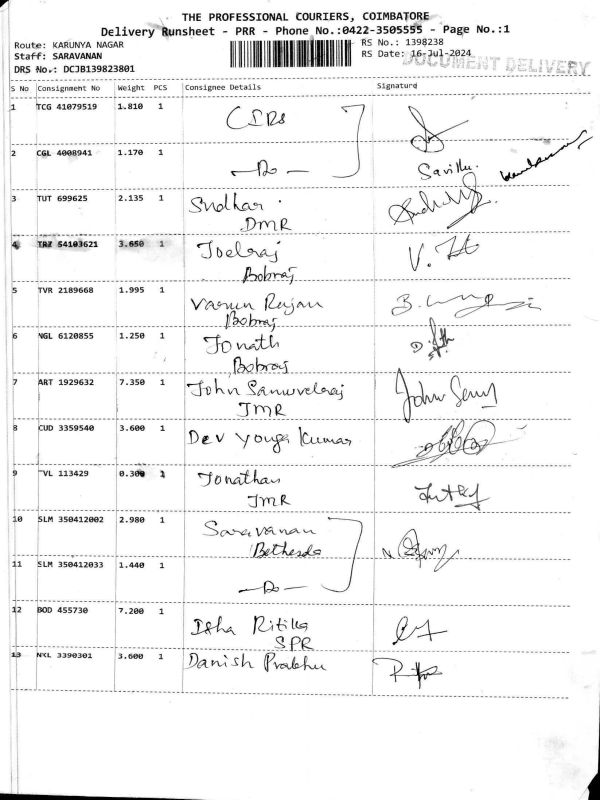 THE PROFESSIONAL COURIERS, COIMBATORE
Delivery Runsheet - PRR - Phone No.:0422-3505555 - Page No.:1
Route: KARUNYA NAGAR RS No.: 1398238
Staff: SARAVANAN RS Date: 16-Jul-2024
DOCUMENT DELIVERY
DRS No.: DCJB139823801
S No Consignment No Weight PCS Consignee Details Signature
1 TCG 41079519 1.810 1
2 CGL 4008941 1.170 1 —Do— Savithu.
3 TUT 699625 2.135 1 Sudhar
DMR
4 TRZ 54103621 3.650 1 Joelraj
Bobraj
5 TVR 2189668 1.995 1 Varun Rajan
Bobraj
6 NGL 6120855 1.250 1 Jonath
Bobraj
7 ART 1929632 7.350 1 John Samuvelraj
JMR
8 CUD 3359540 3.600 1 Dev Yoga Kumar
9 TVL 113429 0.300 1 Jonathan
JMR
10 SLM 350412002 2.980 1 Saravanan
Bethesda
11 SLM 350412033 1.440 1 —Do—
12 BOD 455730 7.200 1 Isha Ritika
SPR
13 NKL 3390301 3.600 1 Danish Prabhu